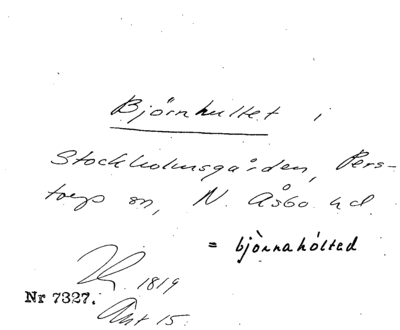 Björnhultet i
Stockholmsgården, Pers-
torps sn, N. Åsbo hd
= bjònnahòlted
1819
Nr 7327.
Ant 15.